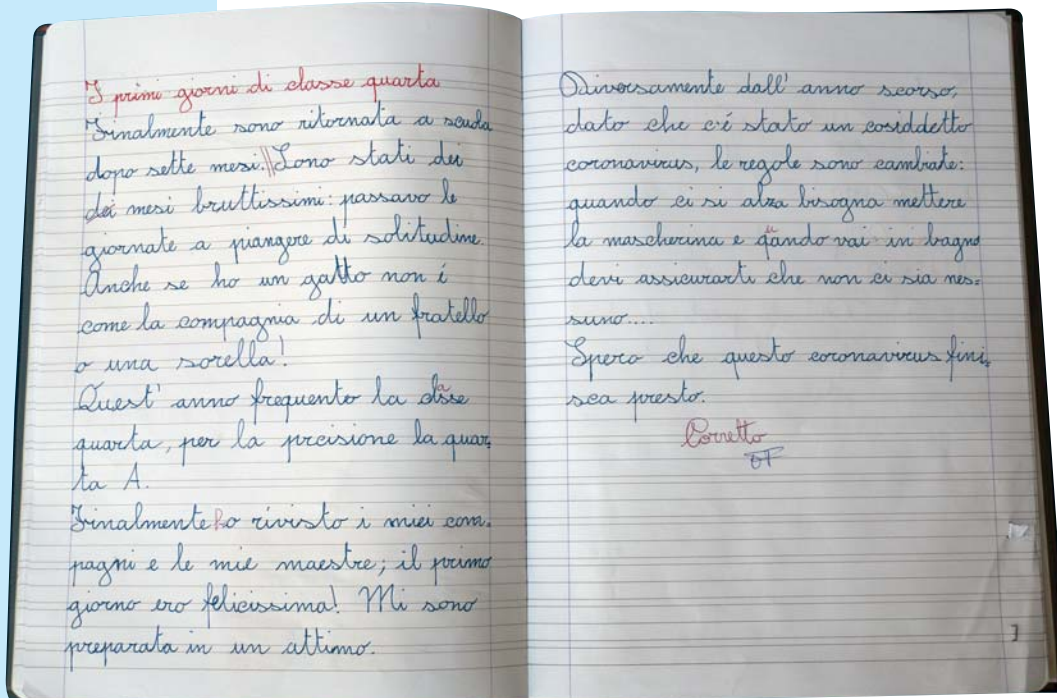 I primi giorni di classe quarta
Finalmente sono ritornata a scuola
dopo sette mesi. Sono stati dei
dei mesi bruttissimi: passavo le
giornate a piangere di solitudine.
Anche se ho un gatto non é
come la compagnia di un fratello
o una sorella!
Quest' anno frequento la classe
quarta, per la precisione la quar=
ta A.
Finalmente ho rivisto i miei com=
pagni e le mie maestre; il primo
giorno ero felicissima! Mi sono
preparata in un attimo.
Diversamente dall' anno scorso,
dato che c'é stato un cosiddetto
coronavirus, le regole sono cambiate:
quando ci si alza bisogna mettere
la mascherina e quando vai in bagno
devi assicurarti che non ci sia nes=
suno....
Spero che questo coronavirus fini=
sca presto.
Corretto